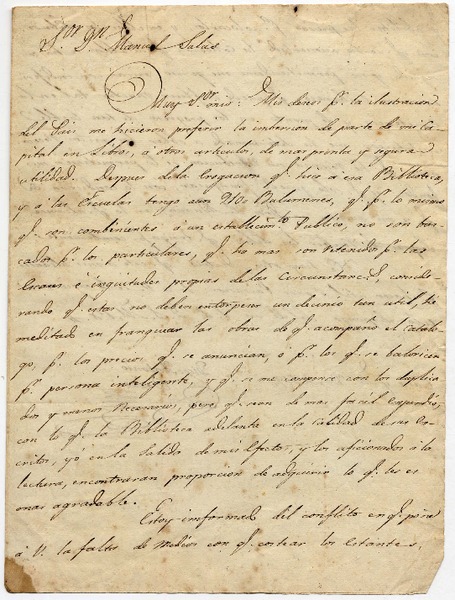 S.or D.n Manuel Salas
Muy S.or mio: Mis deseos p.r la ilustracion
del Pais, me hicieron preferir la inversion de parte de mi Ca
pital en Libros, á otros articulos de mas pronta y segura
utilidad. Despues de la q.e hise á esa Biblioteca,
y á las Escuelas tengo aun Volumenes, q.e p.r lo mismo
q.e son combinientes á un establecim.to Publico, no son bus
cados p.r los particulares, q.e hoy mas son retenidos p.r las
é inquietudes propias de las Circunstanc.s, conside
rando q.e estas no deben entorpeser un tan util, he
meditado en franquear las obras de q.e acompaño el Catalo
go, p.r los precios q.e se anuncian, ó p.r los q.e se baloricen
p.r persona inteligente, y q.e se me compense con los duplica
dos y menos necesarios, pero q.e sean de mas facil Expendio,
con lo q.e la Biblioteca adelanta en la calidad de sus Es
critos, yo en la salida de mis Efectos, y los aficionados á la
lectura, encontraran proporcion de adquirir lo q.e les es
mas agradable.
Estoy informado del conflicto en q.e pone
á V. la falta de Medios con q.e costear los Estantes,